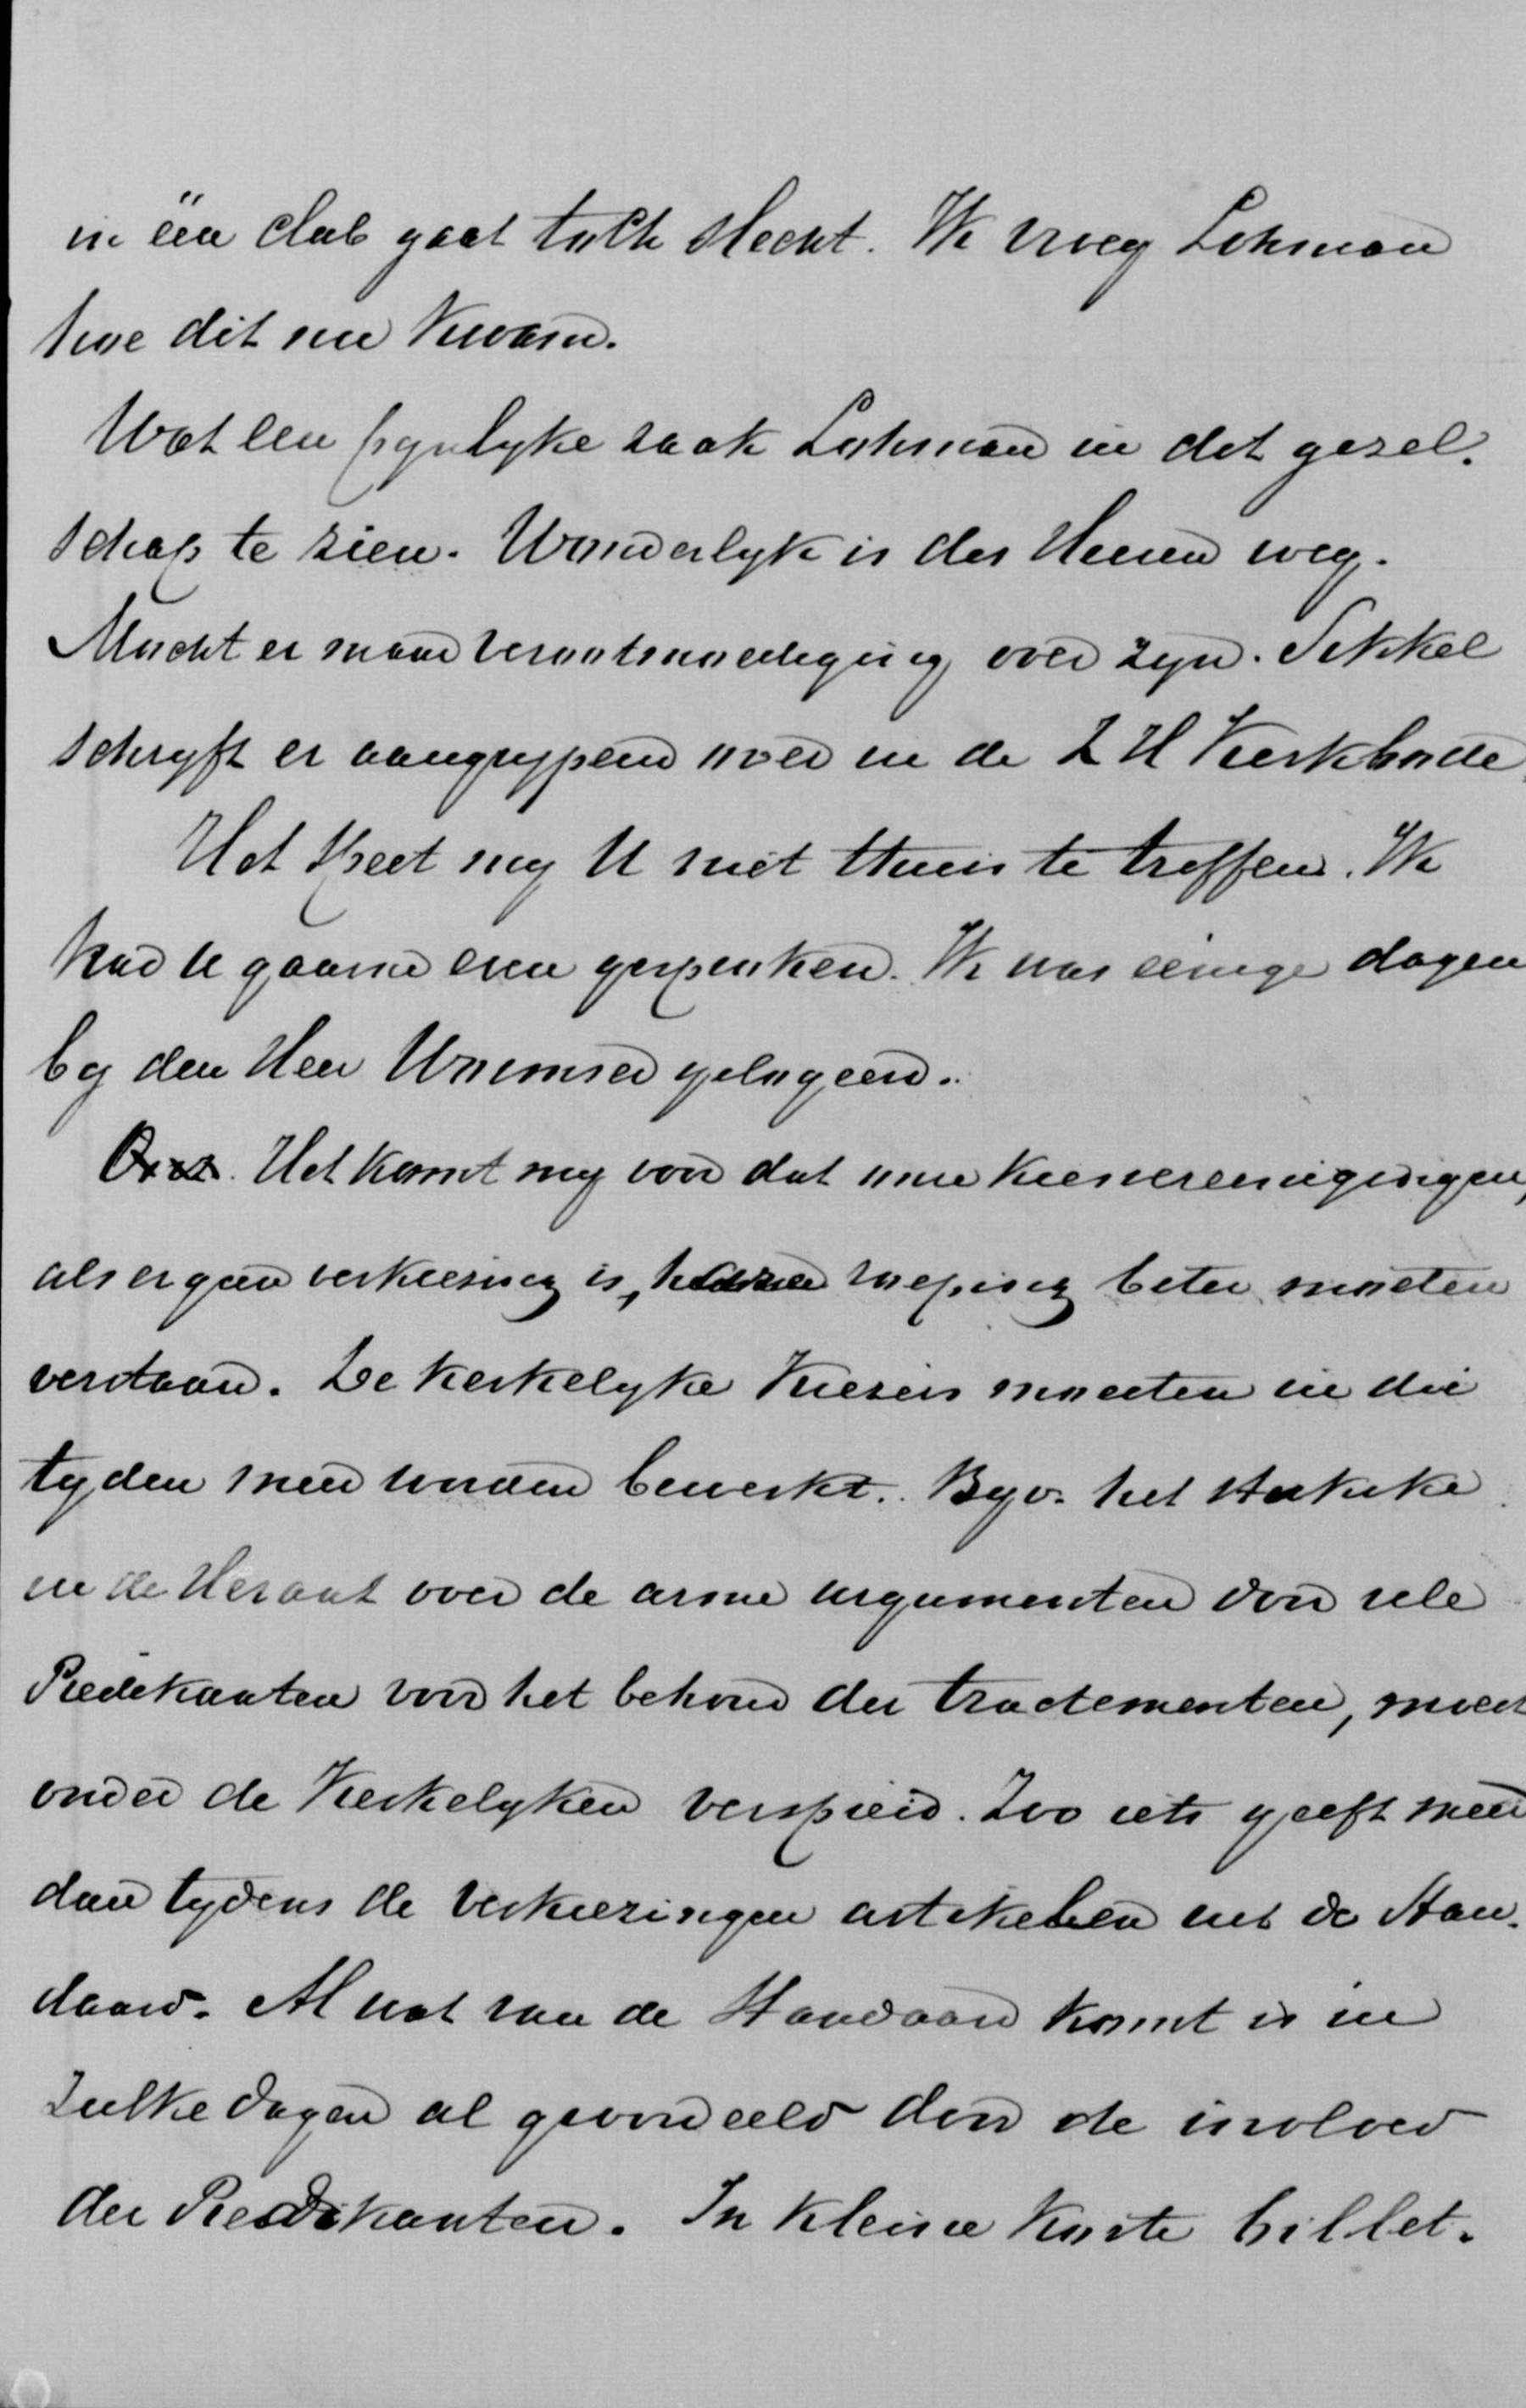 in één club gaat toch slecht. Ik vroeg Lohman
hoe dit nu kwam.
Wat een pynlyke zaak Lohman in dat gezel-
schap te zien. Wonderlyk is des Heeren weg.
Mocht er maar verootmoediging over zyn. Sikkel
schryft er aangrypend over in de Z H Kerkbode.
Het speet my U niet thuis te treffen. Ik
had U gaarne even gesproken. Ik was eenige dagen
by den Heer gelogeerd.
Het komt my voor dat onze kiesvereenigingen,
als er geen verkiezing is, roeping beter moeten
verstaan. De kerkelyke kiezers moesten in die
tyden meer worden bewerkt. Byv. het stukske
in de Heraut over de arme argumenten door vele
Predikanten voor het behoud der tractementen, moest
onder de Kerkelyken verspreid. Zoo iets geeft meer
dan tydens de verkiezingen artikelen uit de Stan-
daard. Al wat van de Standaard komt is in
zulke dagen al geoordeeld door de invloed
der Predikanten. In kleine korte billet-